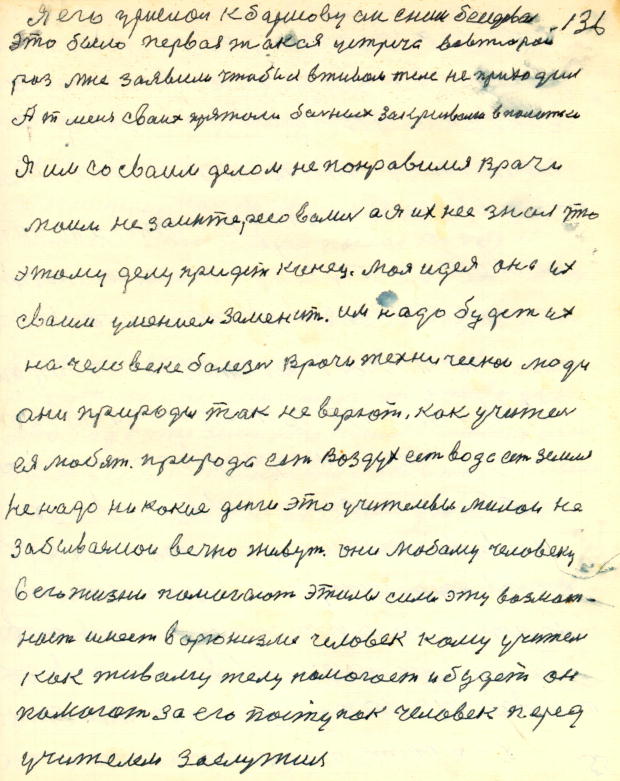 Я его уяснил к бармову он с ним беседова 136
это было первая такая устреча вовторой
роз мне заявили чтобы я втивом теле не приходил
А от меня своих прятоли больних закривали в полотки
Я им со сваим делом не понравимя врачи
моим не заинтересовами а я их нее знал что
этому делу придет конец. моя идея она их
сваим умением заменит. им надо будет их
на человеке болезн врачи техническо моди
ани природы так не верют. как учител
ея мобят. природа ест воздух ест вода ест земля
не надо ни какие денги это учителевы милои не
забиваемои вечно живут. они мобаму человеку
в его жизни помогают этими сили эту возмож-
ност имеет в органзме человек кому учител
как живаму телу помогает и будет он
помогат за его поступок человек перед
учителем заслужил